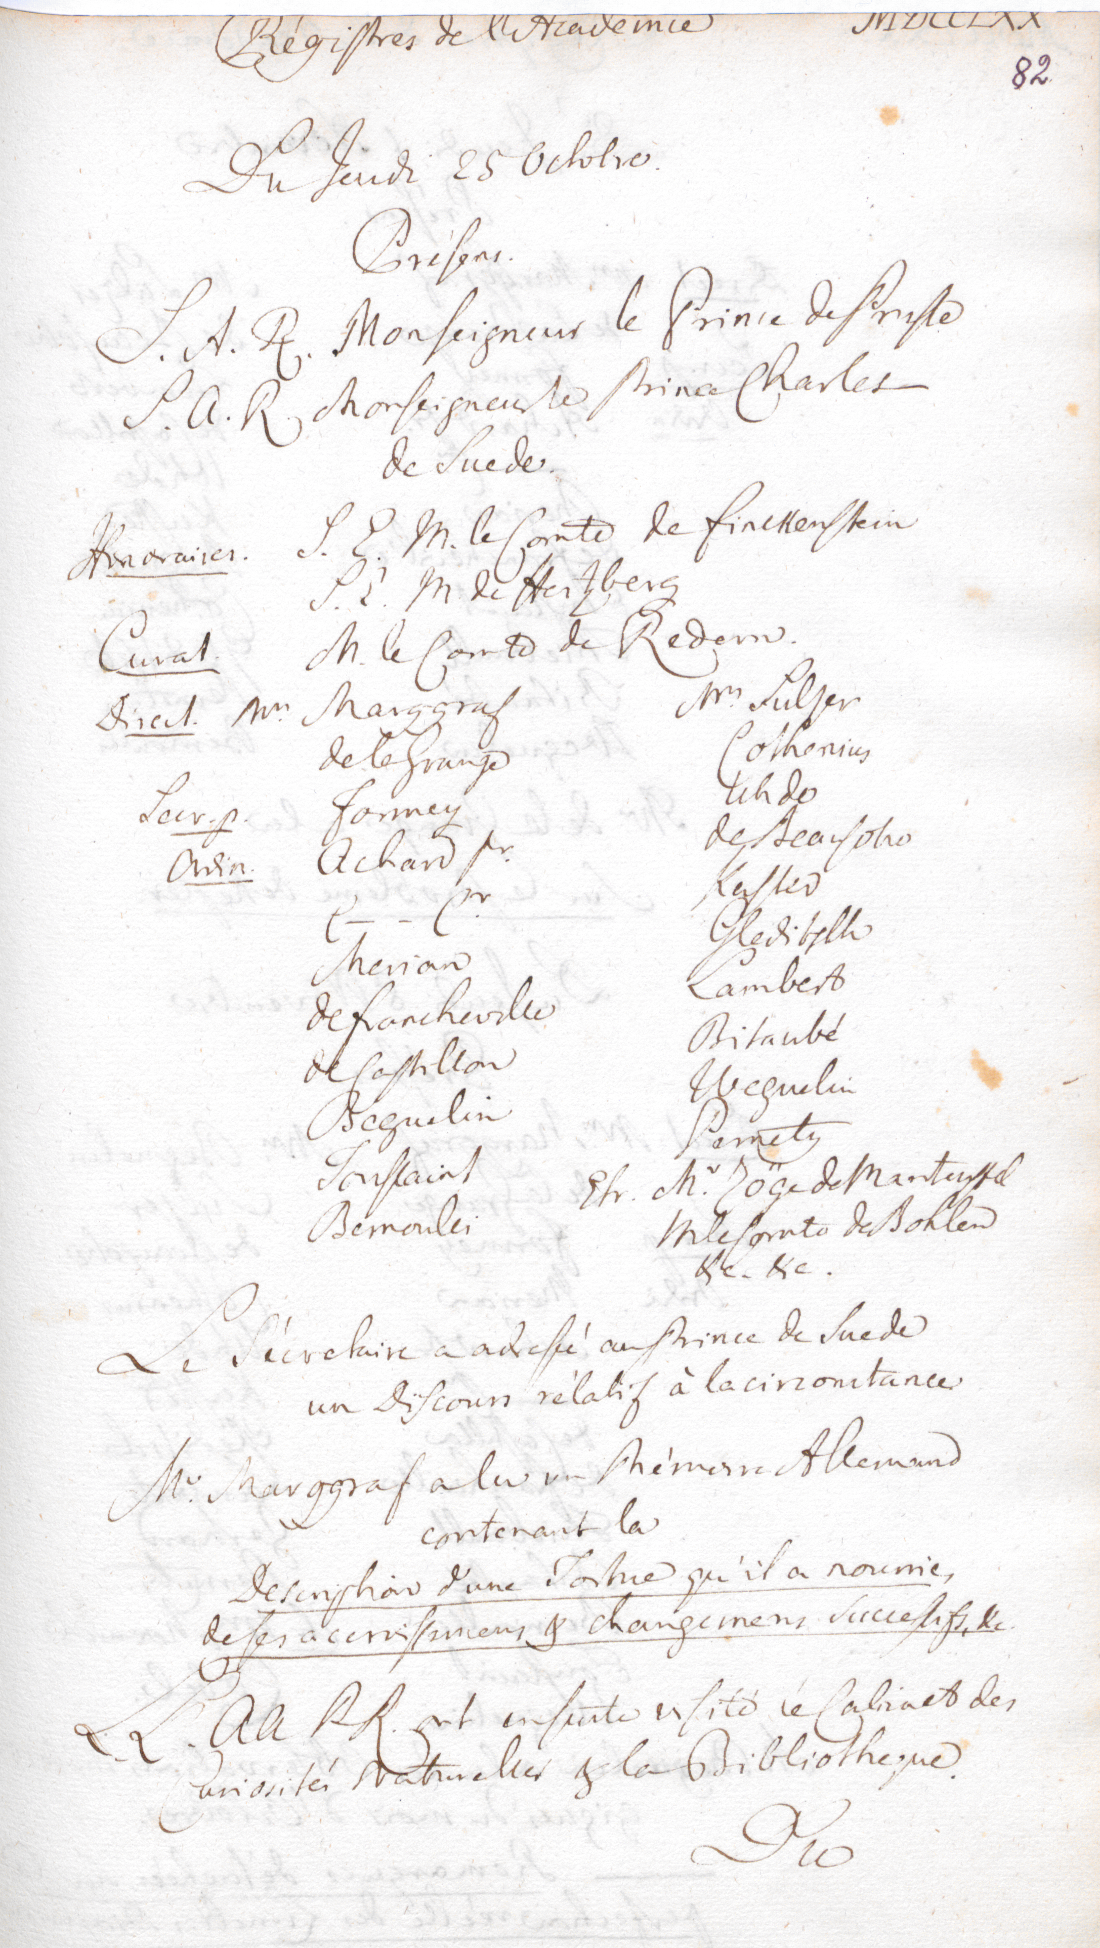 Régistres de l'Academie MDCCLXX
82
Du Jeudi 25 Octobre.
Présens.
S. A. R. Monseigneur le Prince de Prusse
S. A. R. Monseigneur le Prince Charles
de Suede.
Honoraires. S. E. M. le Comte de Finckenstein
S. E. M. de Hertzberg
Curat. M. le Comte de Redern.
Direct. Mrs. Marggraf
de la Grange
Secr. p. Formey
Ordin. Achard pr.
C – – Pr.
Merian
de Francheville
de Castillon
Beguelin
Toussaint
Bernoulli
Mrs. Sulzer
Cothenius
Uhde
de Beausobre
Küster
Gleditsch
Lambert
Bitaubé
Weguelin
Pernety
Etr. Mr. Zöge de Manteuffel
M le Comte de Bohlen
&c. &c.
Le Sécretaire a adressé au Prince de Suede
un Discours rélatif à la circonstance
Mr. Marggraf a lu un Mémoire Allemand
contenant la
Description d'une Tortue qu'il a nourrie,
de ses accroissemens & changemens successifs, &c.
L. L. AA RR. ont ensuite visité le Cabinet des
Curiosités Naturelles & la Bibliotheque.
Du